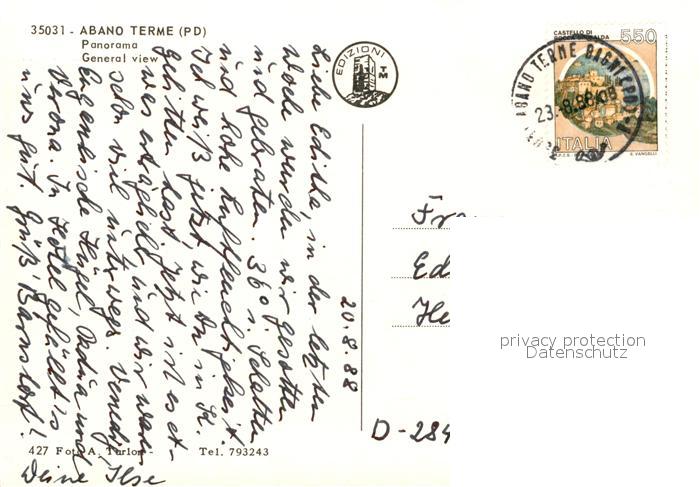 35031 - ABANO TERME (PD)
Panorama
General view
EDIZIONI
TM
CASTELLO DI
ROCCA SINIBALDA
550
ITALIA
ABANO TERME BAGNI (PD)
23.-8.88
20.8.88
Liebe Editha, in der letzten
Woche wurden wir gesotten
und gebraten. 36° i. Schatten
und hohe Luftfeuchtigkeit.
Ich weiß jetzt, wie Du in
gelitten hast. Jetzt ist es et-
was erträglich und wir waren
schon viel unterwegs. Venedig,
Euganeische Hügel, Padua und
Verona. Im Hotel gefällt's
uns gut. Grüß' Barnstorf!
Deine Ilse
Fr
Ed
He
D-284
privacy protection
Datenschutz
427 Foto A. Turlon - Tel. 793243